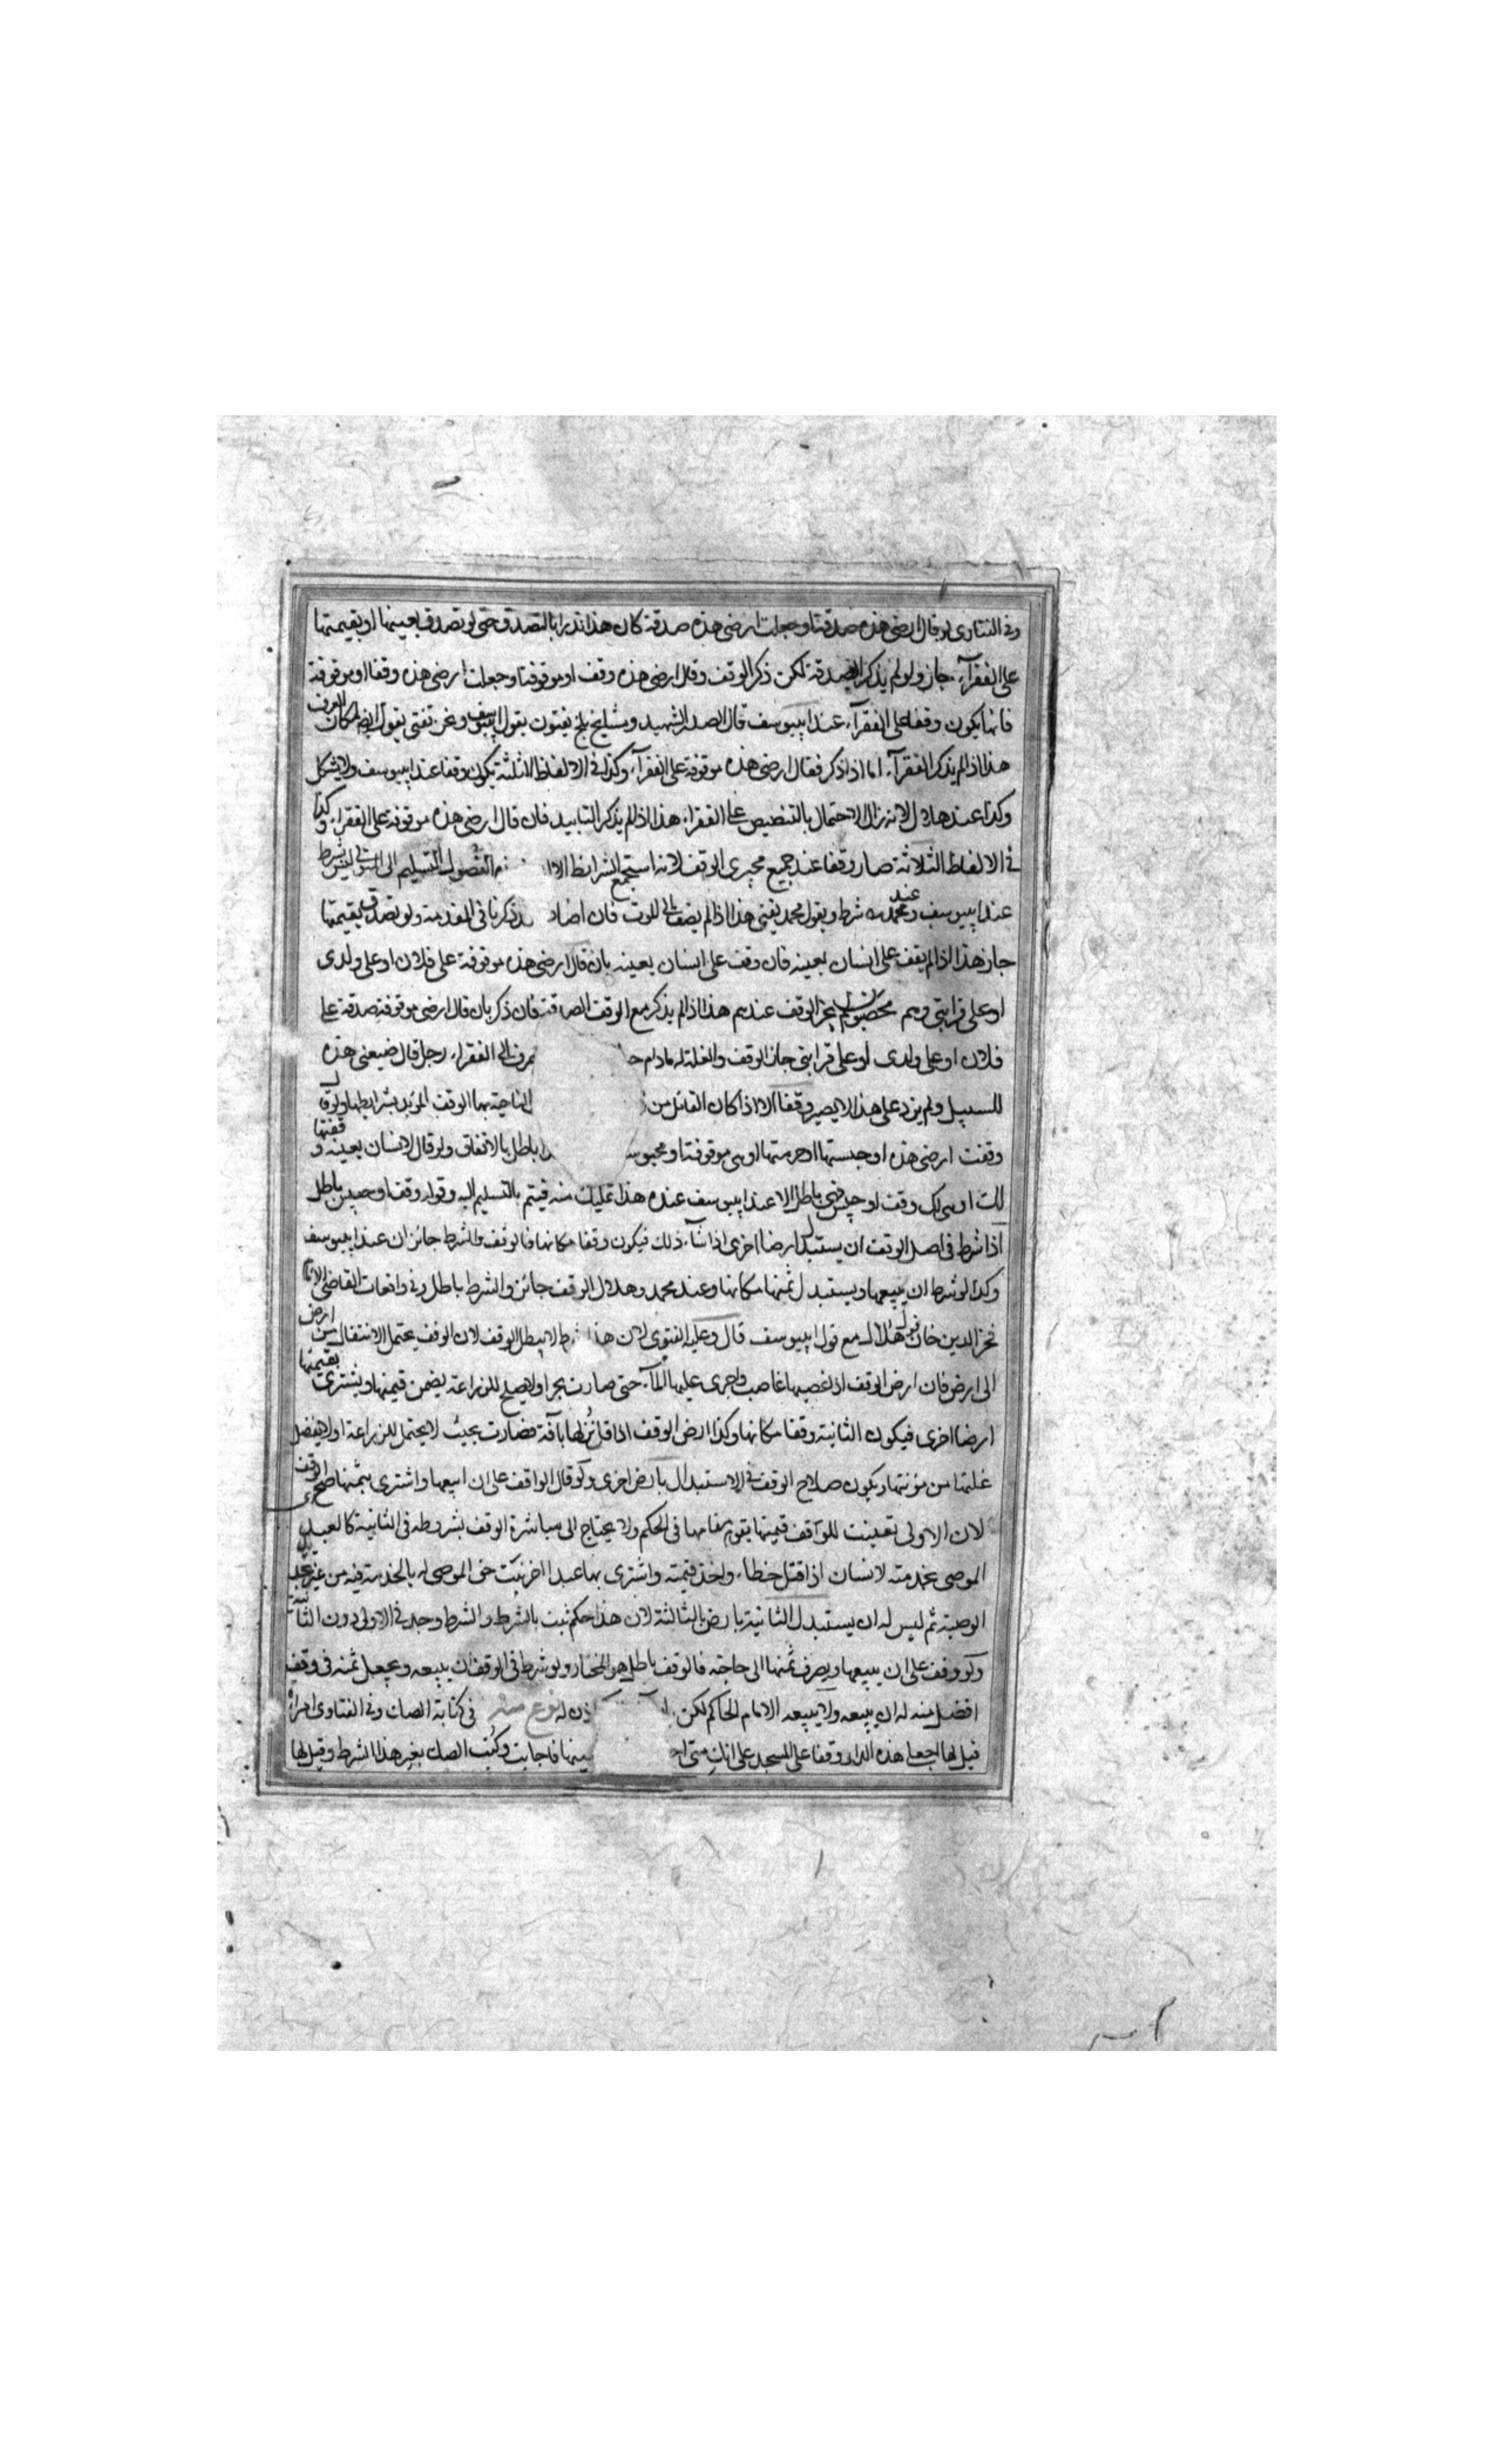 وفى الفتاوى لو قال ارضى هذه صدقة او جعلت ارضى هذه صدقة كان هذا نذرا بالتصدق حتى لو تصدق بعينها او بقيمتها
على الفقرآء جاز ولو لم يذكر الصدقة لكن ذكر الوقف وقال ارضى هذه وقف او موقوفة او جعلت ارضى هذه وقفا او موقوفة
فانها يكون وقفا على الفقرآء عند ابييوسف قال الصدر الشهيد ومشايخ بلخ يفتون بقول ابييوسف ونحن نفتى بقوله ايضا لمكان العرف
هذا اذا لم يذكر الفقرآء اما اذا ذكر فقال ارضى هذه موقوفة على الفقرآء وكذا فى الالفاظ الثلثة يكون وقفا عند ابييوسف ولا يشكل
وكذا عند هلال لانه زال الاحتمال بالتنصيص على الفقراء هذا اذا لم يذكر التابيد فان قال ارضى هذه موقوفة على الفقراء وكذا
فى الالفاظ الثلاثة صار وقفا عند جميع مجيزى الوقف لانه استجمع الشرايط الا الفصول التسليم الى المتولى ليس بشرط
عند ابييوسف وعند محمد شرط وبقول محمد يفتى هذا اذا لم يضف الى الموت فان اضاف ذكرنا فى المقدمة ولو تصدق بقيمتها
جاز هذا اذا لم يقف على انسان بعينه فان وقف على انسان بعينه بان قال ارضى هذه موقوفة على فلان او على ولدى
او على قرابتى وهم محصون لم يجز الوقف عندهم هذا اذا لم يذكر مع الوقف الصدقة فان ذكر بان قال ارضى موقوفة صدقة على
فلان او على ولدى او على قرابتى جاز الوقف والغلة له مادام الى الفقراء رجل قال ضيعتى هذه
للسبيل ولم يزد على هذا لا يصير وقفا الا اذا كان القائل من الناحية بها الوقف المؤبد بشرايطها ولو قال
وقفت ارضى هذه او حبستها او حرمتها او هى موقوفة او محبوسة باطل بالاتفاق ولو قال لانسان بعينه وقفتها
لك او هى لك وقف او حبس فهى باطل الا عند ابييوسف عنده هذا تمليك منه فيتم بالتسليم اليه وقوله وقف او حبس باطل
اذا شرط فى اصل الوقف ان يستبدل ارضا اخرى اذا شآء ذلك فيكون وقفا مكانها فالوقف والشرط جائزان عند ابييوسف
وكذا لو شرط ان يبيعها ويستبدل ثمنها مكانها وعند محمد وهلال الوقف جائز والشرط باطل وفى واقعات القاضى الامام
فخر الدين خان قول هلال مع قول ابييوسف قال وعليه الفتوى لان هذا شرط لا يبطل الوقف لان الوقف يحتمل الانتقال من ارض
الى ارض فان ارض الوقف اذا غصبها غاصب واجرى عليها المآء حتى صارت بحرا ولا يصلح للزراعة يضمن قيمتها ويشترى بقيمتها
ارضا اخرى فيكون الثانية وقفا مكانها وكذا ارض الوقف اذا قل نزلها بآفة فصارت بحيث لا يحتمل للزراعة او لا يفضل
غلتها من مؤنتها ويكون صلاح الوقف فى الاستبدال بارض اخرى ولو قال الواقف على ان ابيعها واشترى بثمنها اخرى صح الوقف
لان الاولى تعينت للوقف فقيمتها يقوم مقامها فى الحكم ولا يحتاج الى مباشرة الوقف بشروطه فى الثانية كالعبد
الموصى بخدمته لانسان اذا قتل خطاء واخذ قيمته واشترى بها عبدا اخر ثبت حق الموصى له بالخدمة فيه من غير تجديد
الوصية ثم ليس له ان يستبدل الثانية بارض الثالثة لان هذا حكم ثبت بالشرط والشرط وجد فى الاولى دون الثانية
ولو وقف على ان يبيعها ويصرف ثمنها الى حاجته فالوقف باطل هو المختار ولو شرط فى الوقف ان يبيعه ويجعل ثمنه فى وقف
افضل منه له ان يبيعه ولا يبيعه الا مام الحاكم لكن له نوع منه فى كتابة الصك وفى الفتاوى امراة
قيل لها اجعلى هذه الدار وقفا على المسجد على انك متى فاجابت وكتب الصك بغير هذا الشرط وقيل لها